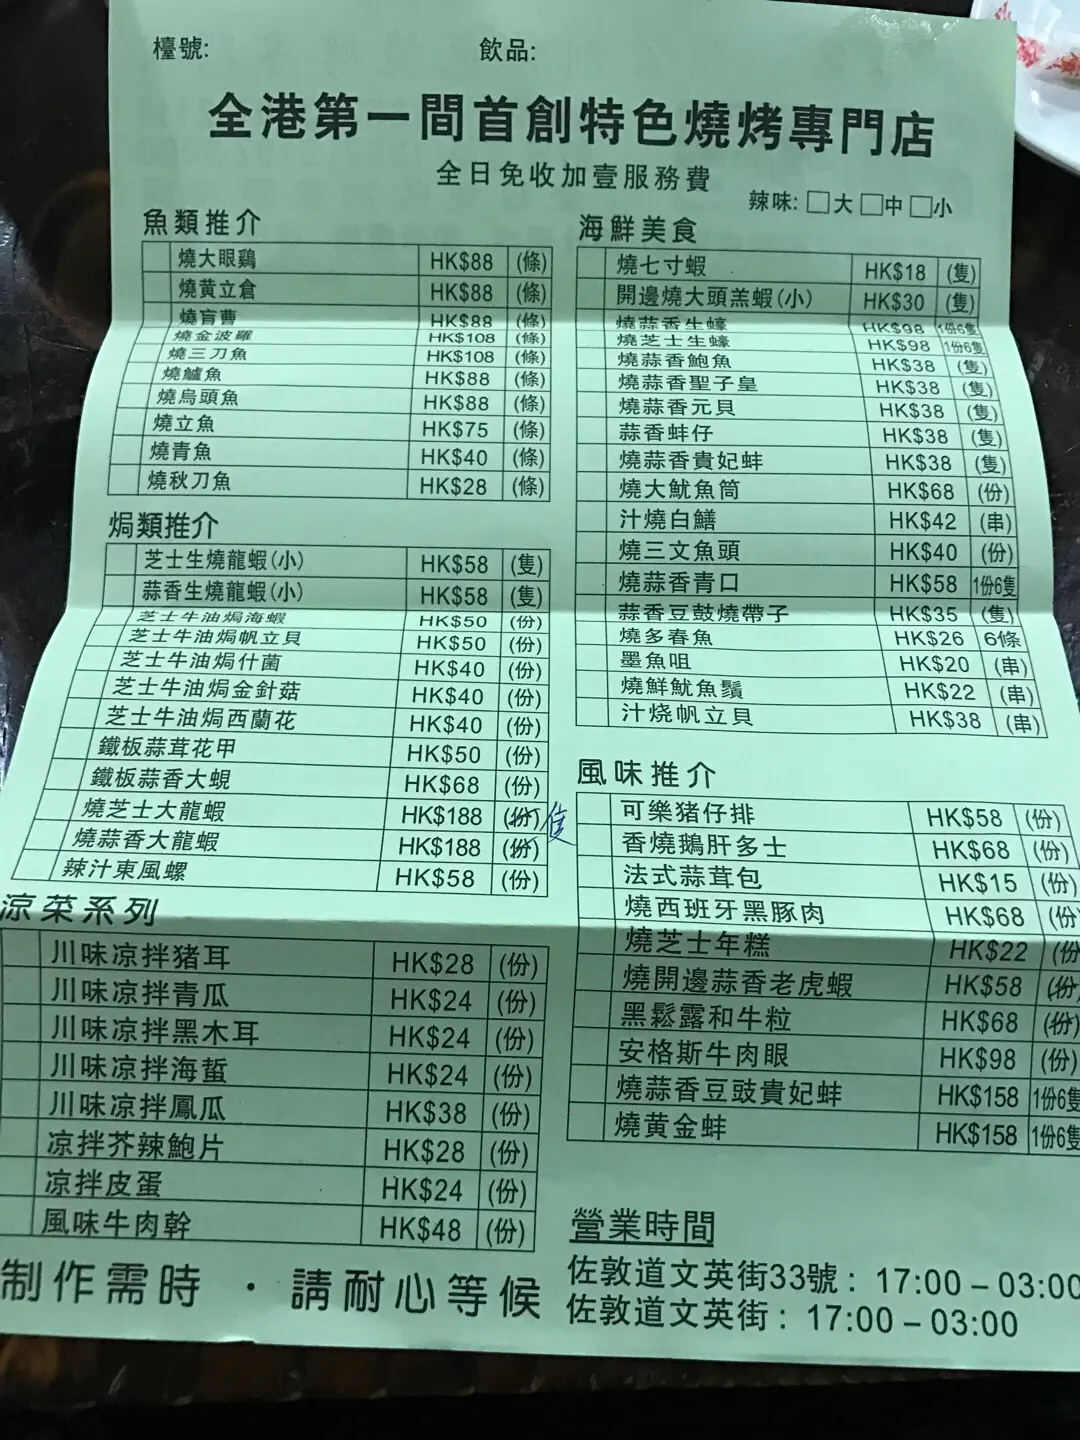 檯號:
飲品:
全港第一間首創特色燒烤專門店
全日免收加壹服務費
辣味: □大 □中 □小
魚類推介
燒大眼鷄 HK$88 (條)
燒黄立倉 HK$88 (條)
燒盲曹 HK$88 (條)
燒金波羅 HK$108 (條)
燒三刀魚 HK$108 (條)
燒鱸魚 HK$88 (條)
燒烏頭魚 HK$88 (條)
燒立魚 HK$75 (條)
燒青魚 HK$40 (條)
燒秋刀魚 HK$28 (條)
焗類推介
芝士生燒龍蝦(小) HK$58 (隻)
蒜香生燒龍蝦(小) HK$58 (隻)
芝士牛油焗海蝦 HK$50 (份)
芝士牛油焗帆立貝 HK$50 (份)
芝士牛油焗什菌 HK$40 (份)
芝士牛油焗金針菇 HK$40 (份)
芝士牛油焗西蘭花 HK$40 (份)
鐵板蒜茸花甲 HK$50 (份)
鐵板蒜香大蜆 HK$68 (份)
燒芝士大龍蝦 HK$188 (份) 隻
燒蒜香大龍蝦 HK$188 (份)
辣汁東風螺 HK$58 (份)
涼菜系列
川味凉拌猪耳 HK$28 (份)
川味凉拌青瓜 HK$24 (份)
川味凉拌黑木耳 HK$24 (份)
川味凉拌海蜇 HK$24 (份)
川味凉拌鳳瓜 HK$38 (份)
凉拌芥辣鮑片 HK$28 (份)
凉拌皮蛋 HK$24 (份)
風味牛肉幹 HK$48 (份)
制作需時 · 請耐心等候
海鮮美食
燒七寸蝦 HK$18 (隻)
開邊燒大頭羔蝦(小) HK$30 (隻)
燒蒜香生蠔 HK$98 1份6隻
燒芝士生蠔 HK$98 1份6隻
燒蒜香鮑魚 HK$38 (隻)
燒蒜香聖子皇 HK$38 (隻)
燒蒜香元貝 HK$38 (隻)
蒜香蚌仔 HK$38 (隻)
燒蒜香貴妃蚌 HK$38 (隻)
燒大魷魚筒 HK$68 (份)
汁燒白鱔 HK$42 (串)
燒三文魚頭 HK$40 (份)
燒蒜香青口 HK$58 1份6隻
蒜香豆鼓燒帶子 HK$35 (隻)
燒多春魚 HK$26 6條
墨魚咀 HK$20 (串)
燒鮮魷魚鬚 HK$22 (串)
汁烧帆立貝 HK$38 (串)
風味推介
可樂猪仔排 HK$58 (份)
香燒鵝肝多士 HK$68 (份)
法式蒜茸包 HK$15 (份)
燒西班牙黑豚肉 HK$68 (份)
燒芝士年糕 HK$22 (份
燒開邊蒜香老虎蝦 HK$58 (份)
黑鬆露和牛粒 HK$68 (份)
安格斯牛肉眼 HK$98 (份)
燒蒜香豆豉貴妃蚌 HK$158 1份6隻
燒黄金蚌 HK$158 1份6隻
營業時間
佐敦道文英街33號 : 17:00 – 03:00
佐敦道文英街 : 17:00 – 03:00